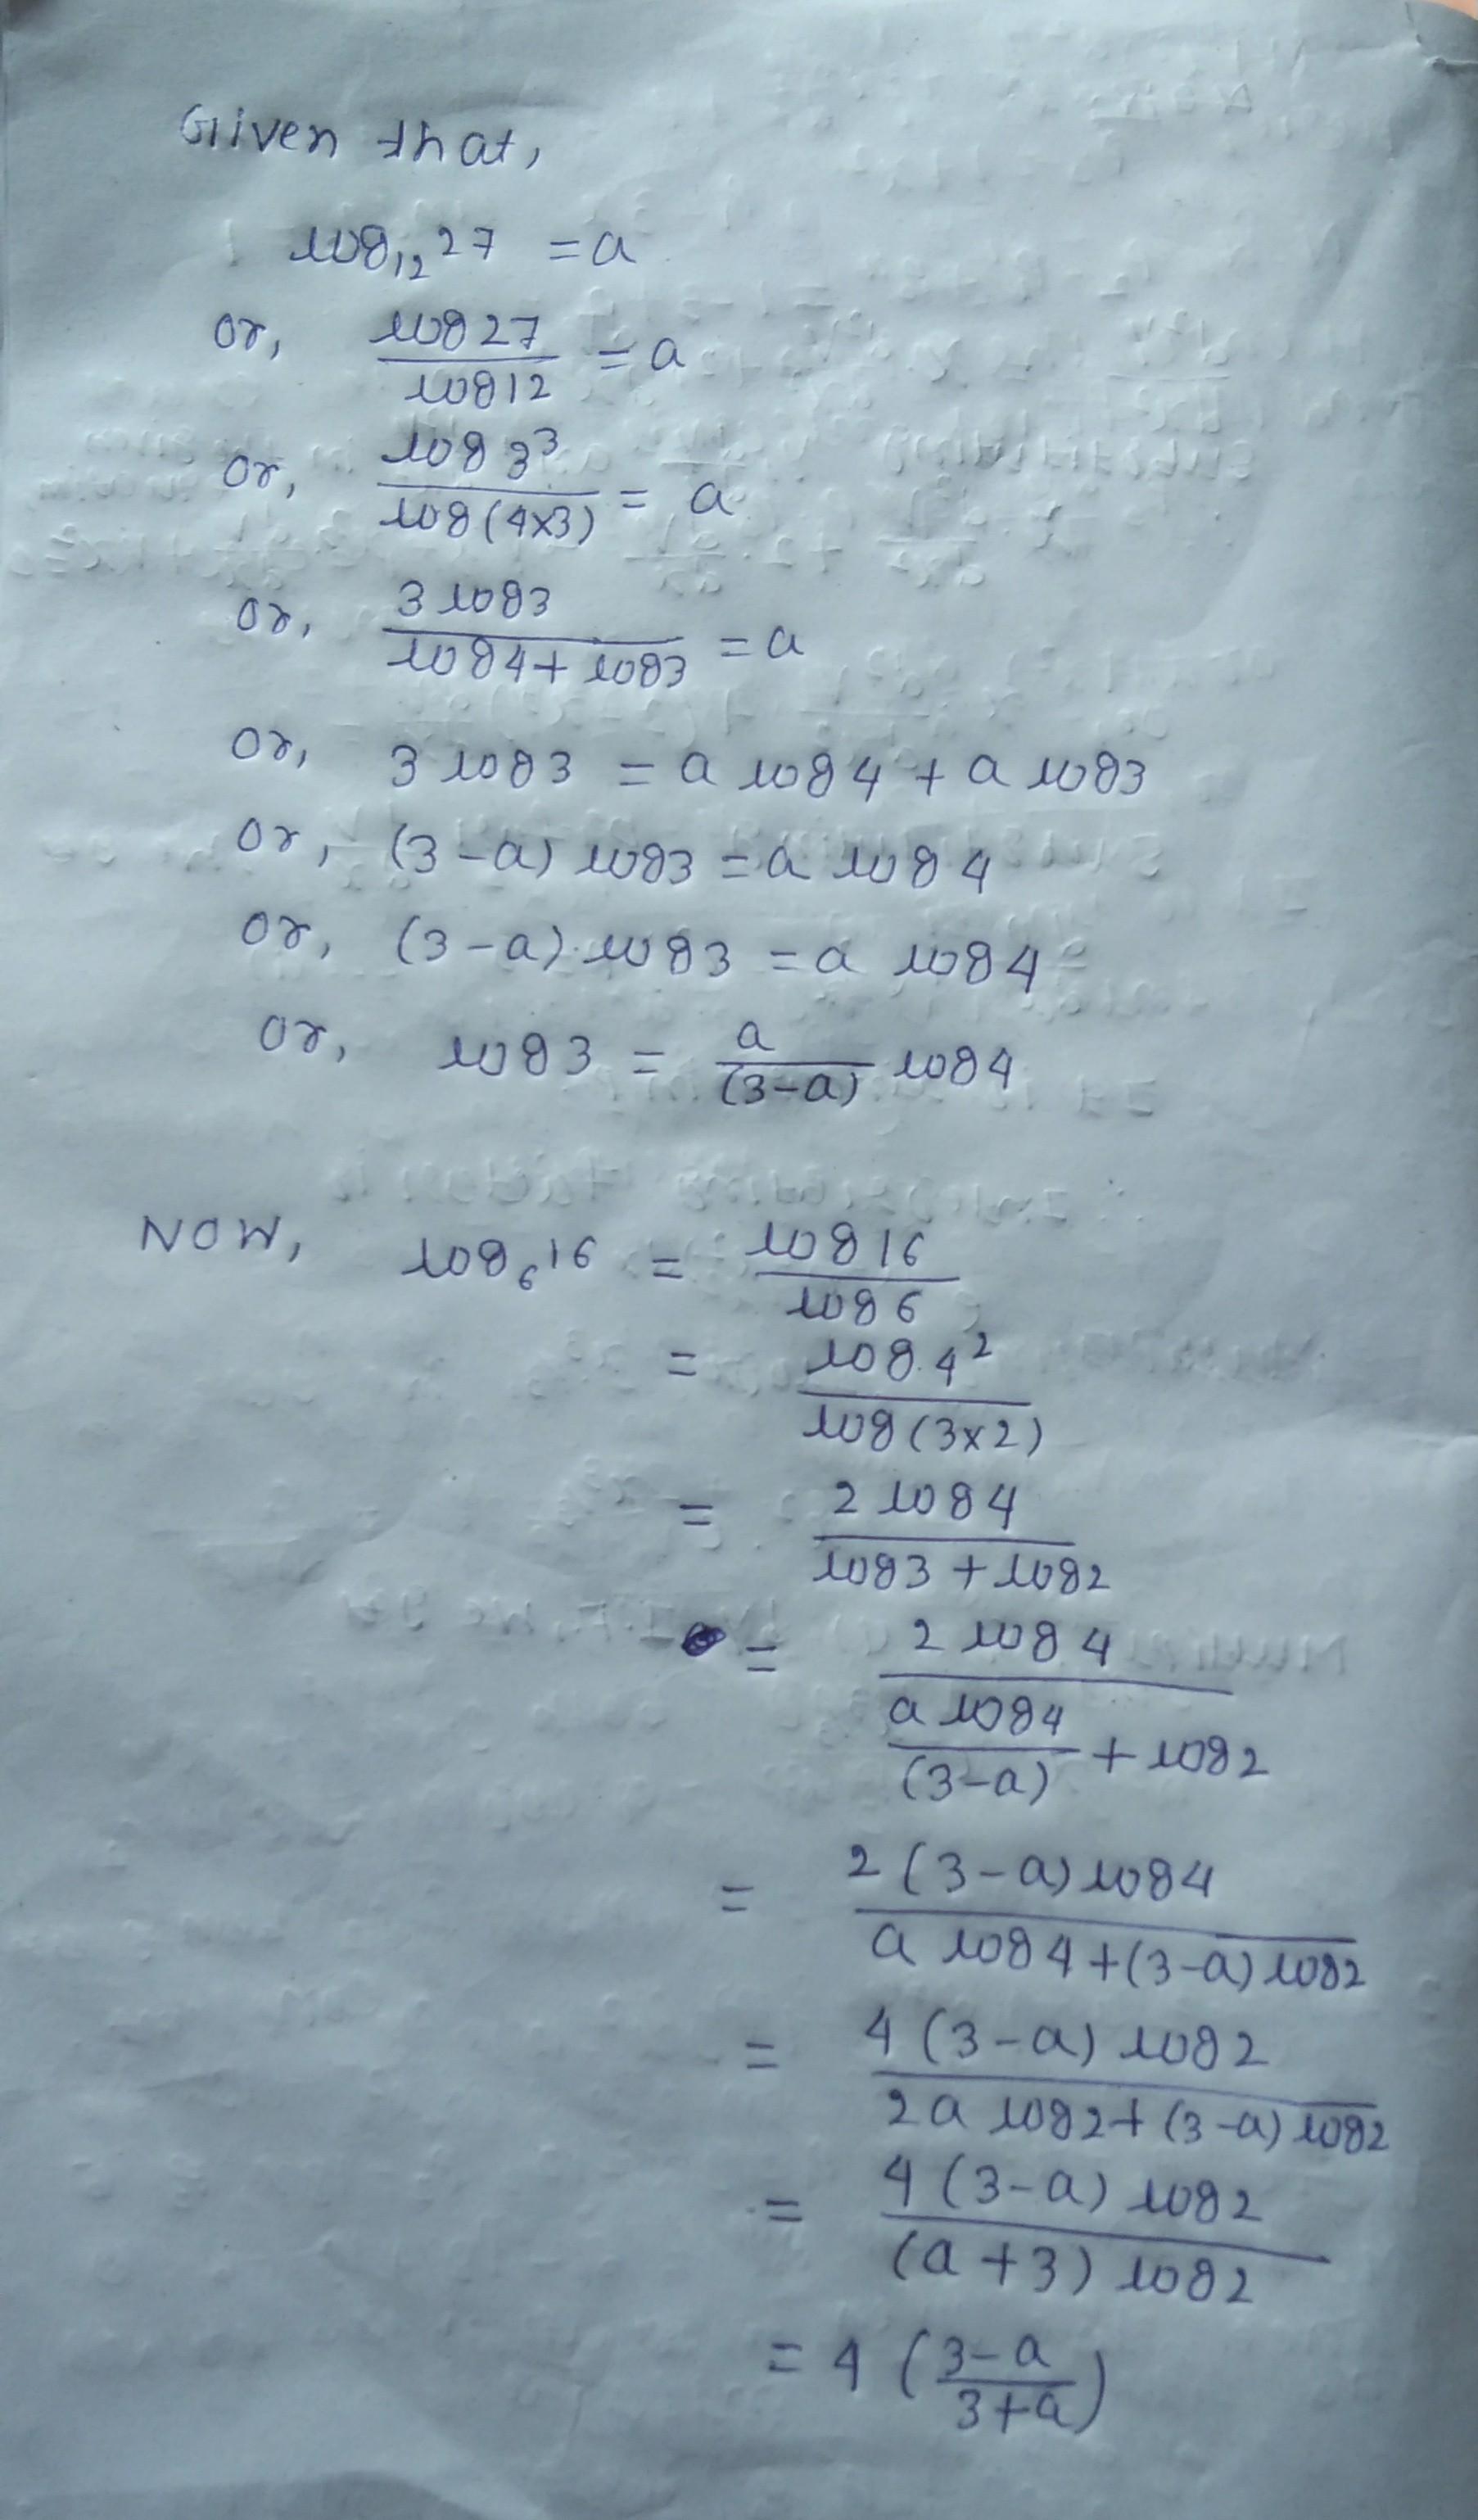 Given that,
log₁₂ 27 = a
or, log 27 / log 12 = a
or, log 3³ / log (4×3) = a
or, 3 log 3 / log 4 + log 3 = a
or, 3 log 3 = a log 4 + a log 3
or, (3-a) log 3 = a log 4
or, (3-a) log 3 = a log 4
or, log 3 = a / (3-a) log 4
Now, log₆ 16 = log 16 / log 6
= log 4² / log (3×2)
= 2 log 4 / log 3 + log 2
= 2 log 4 / a log 4 / (3-a) + log 2
= 2 (3-a) log 4 / a log 4 + (3-a) log 2
= 4 (3-a) log 2 / 2a log 2 + (3-a) log 2
= 4 (3-a) log 2 / (a+3) log 2
= 4 (3-a / 3+a)